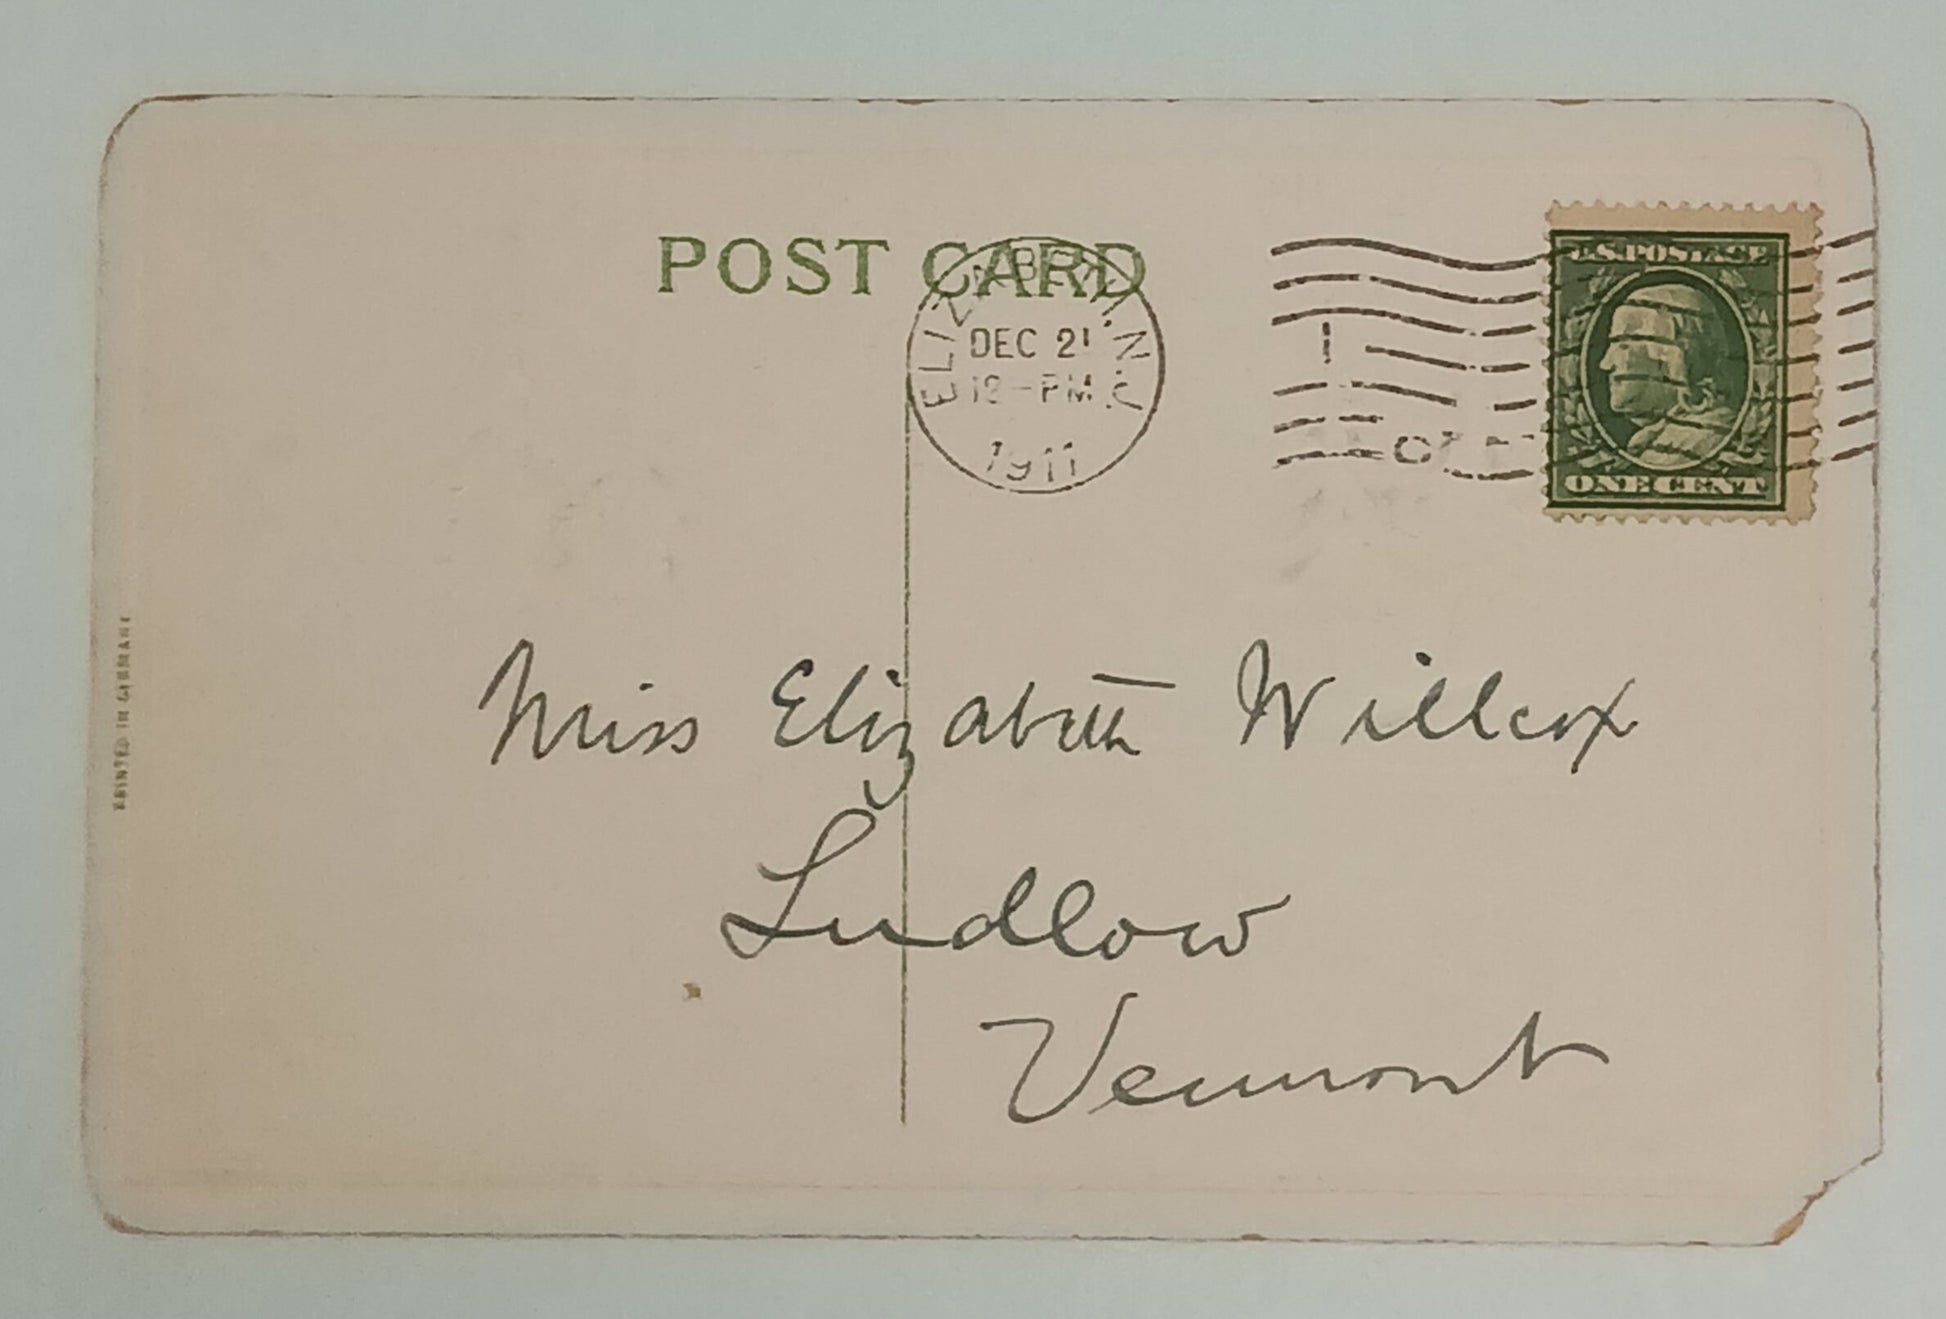 POST CARD
ELIZABETH, N.J.
DEC 21
12-PM
1911
U.S. POSTAGE
ONE CENT
Miss Elizabeth Willcox
Ludlow
Vermont
PRINTED IN GERMANY